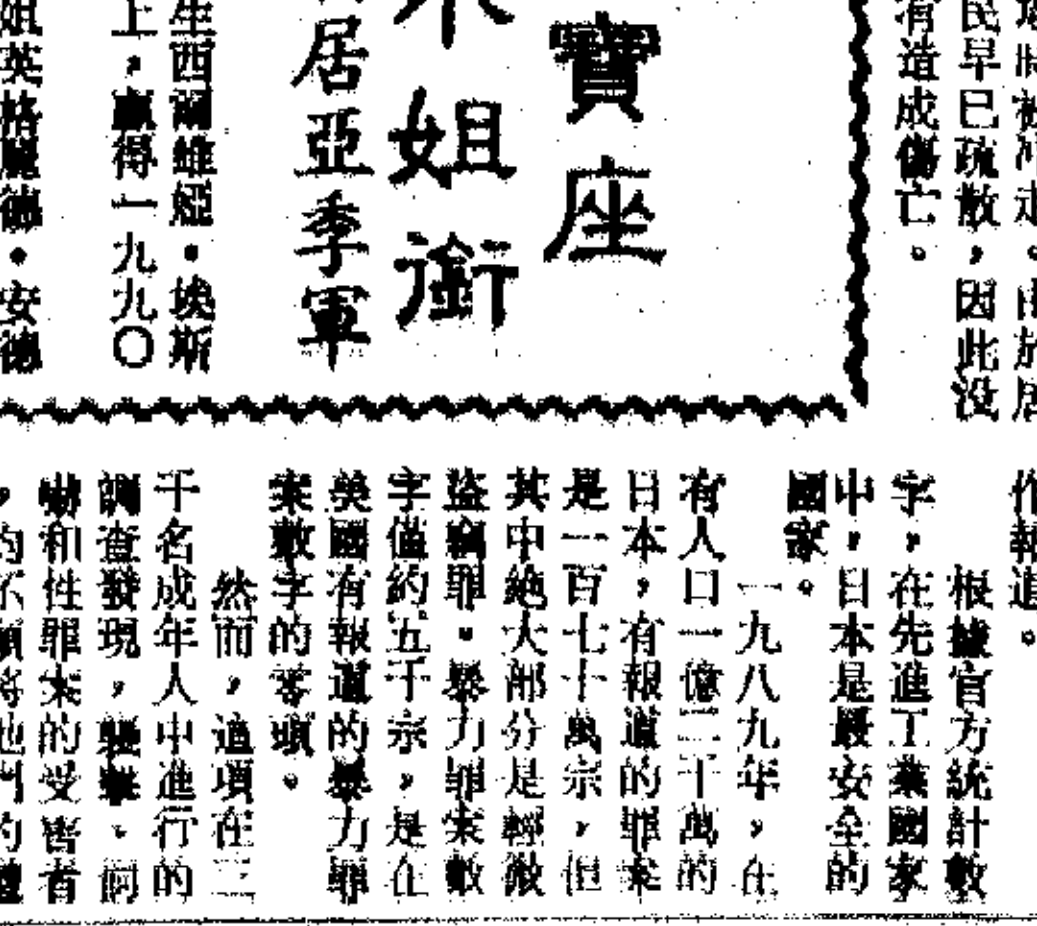 民早已疏散，因此没
有造成傷亡。
寶座
姐銜
居亞季軍
生西爾維婭·埃斯
上，贏得一九九〇
姐英格麗德·安德
作報道。
根據官方統計數
字，在先進工業國家
中，日本是最安全的
國家。
一九八九年，在
有人口一億二千萬的
日本，有報道的罪案
是一百七十萬宗，但
其中絶大部分是輕微
盜竊罪。暴力罪案數
字僅約五千宗，是在
美國有報道的暴力罪
案數字的零頭。
然而，這項在三
千名成年人中進行的
調查發現，襲擊、恫
嚇和性罪案的受害者